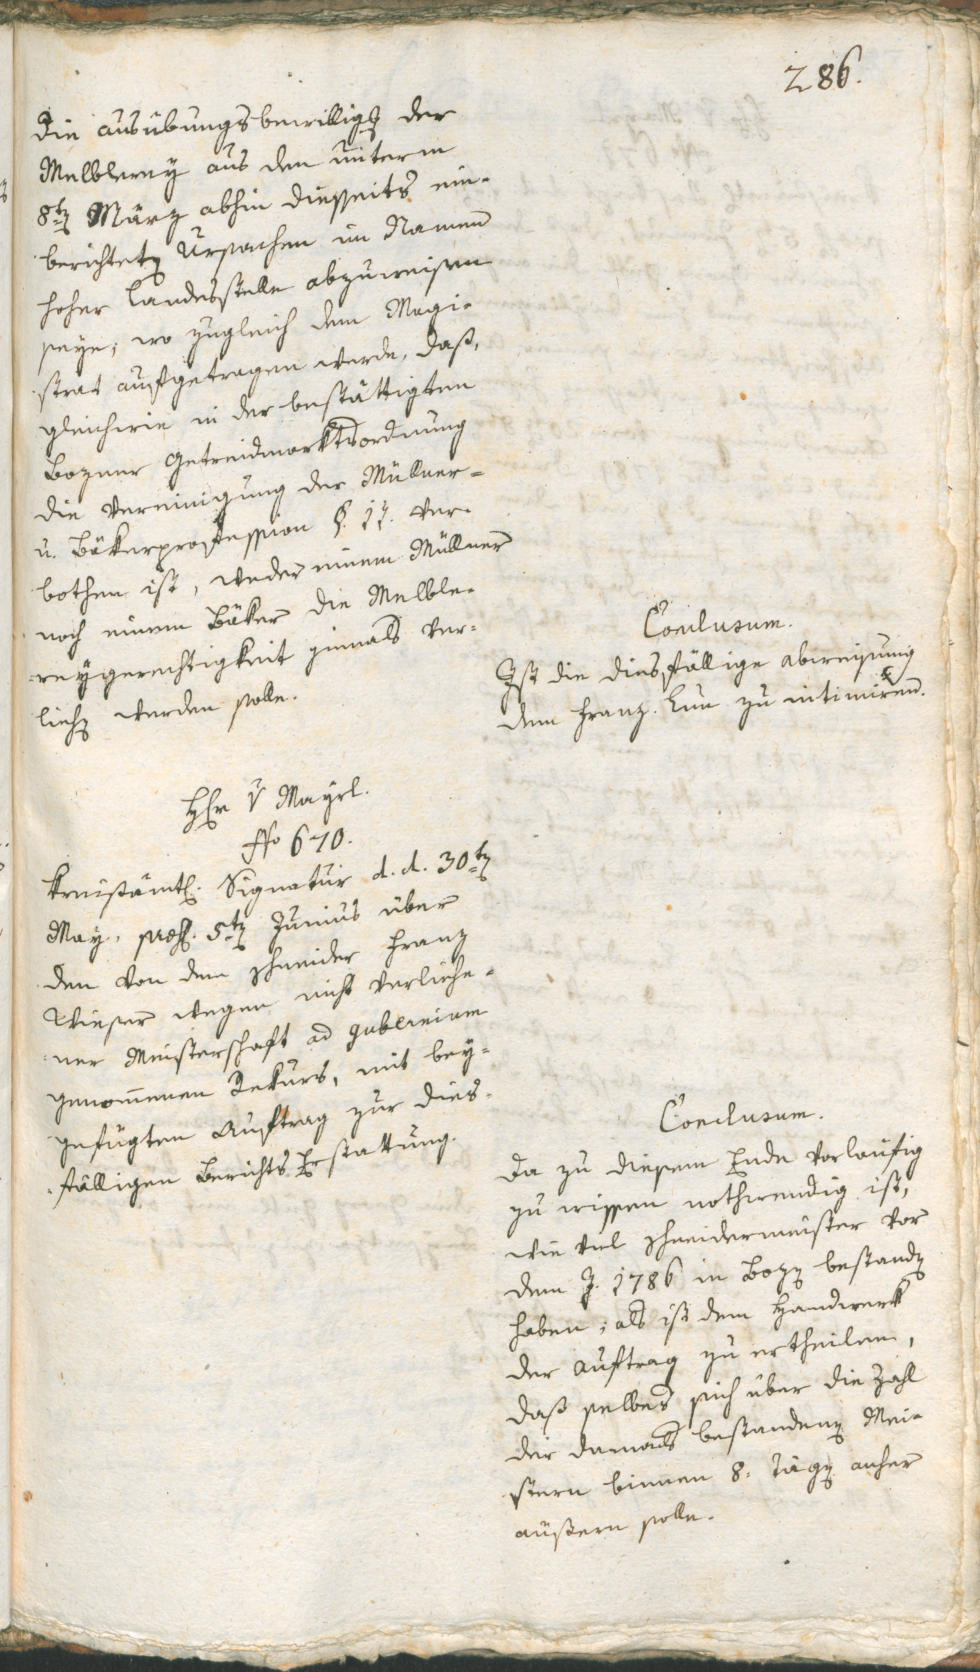 286.
die Ausübungsbewillig der
Melblerey aus den unterm
8t März abhin diesseits ein-
berichtet Ursachen im Namen
hoher Landesstelle abzuweisen
seye; wo zugleich dem Magi-
strat aufgetragen werde, daß,
gleichwie in der bestättigten
Bozner Getreidmarktsordnung
die Vereinigung der Müllner-
u. Bäkerprofession §. 17. ver-
bothen ist, weder einem Müllner
noch einem Bäker die Melble-
reygerechtigkeit jemals ver-
lieh werden solle.
Conclusum.
Ist die diesfällige Abweisung
dem Franz Lun zu intimiren.
H V Mayrl.
No 670.
Kreisämtl. Signatur d. d. 30t
May, præs. 5t Junius über
den von dem Schneider Franz
Wieser wegen nicht verliehe-
ner Meisterschaft ad Gubernium
genommenen Rekurs, mit bey-
gefügten Auftrag zur dies-
fälligen Berichts Erstattung.
Conclusum.
Da zu diesem Ende vorläufig
zu wissen nothwendig ist,
wie viel Schneidermeister vor
dem J. 1786 in Boz bestand
haben; als ist dem Handwerk
der Auftrag zu ertheilen,
daß selbes sich über die Zahl
der damals bestanden Mei-
stern binnen 8. Täg anher
äußern solle.